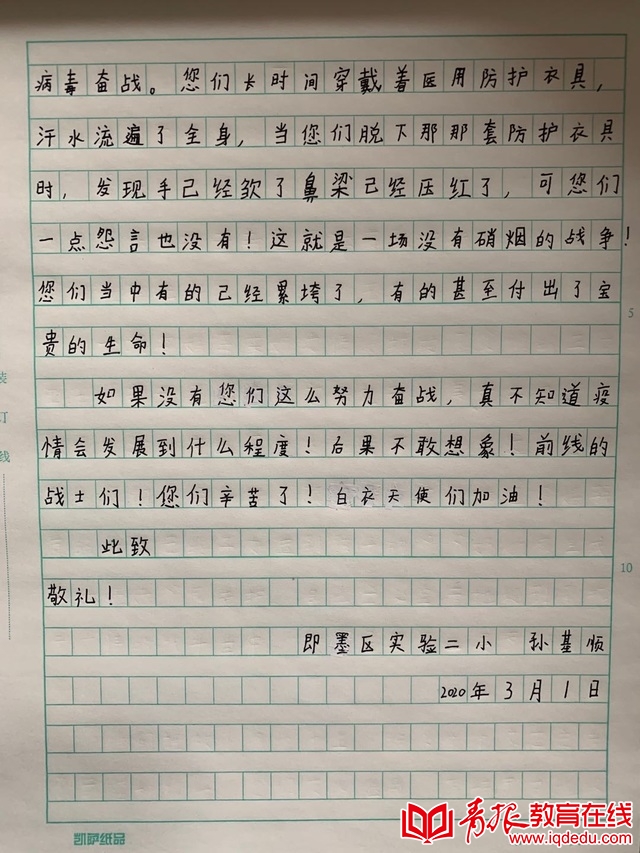 病毒奋战。您们长时间穿戴着医用防护衣具，
汗水流遍了全身，当您们脱下那那套防护衣具
时，发现手已经软了鼻梁已经压红了，可您们
一点怨言也没有！这就是一场没有硝烟的战争！
您们当中有的已经累垮了，有的甚至付出了宝
5
贵的生命！
如果没有您们这么努力奋战，真不知道疫
情会发展到什么程度！后果不敢想象！前线的
战士们！您们辛苦了！白衣天使们加油！
此致
10
敬礼！
即墨区实验二小 孙基顺
2020年3月1日
装
订
线
凯萨纸品
青报教育在线
www.iqdedu.com